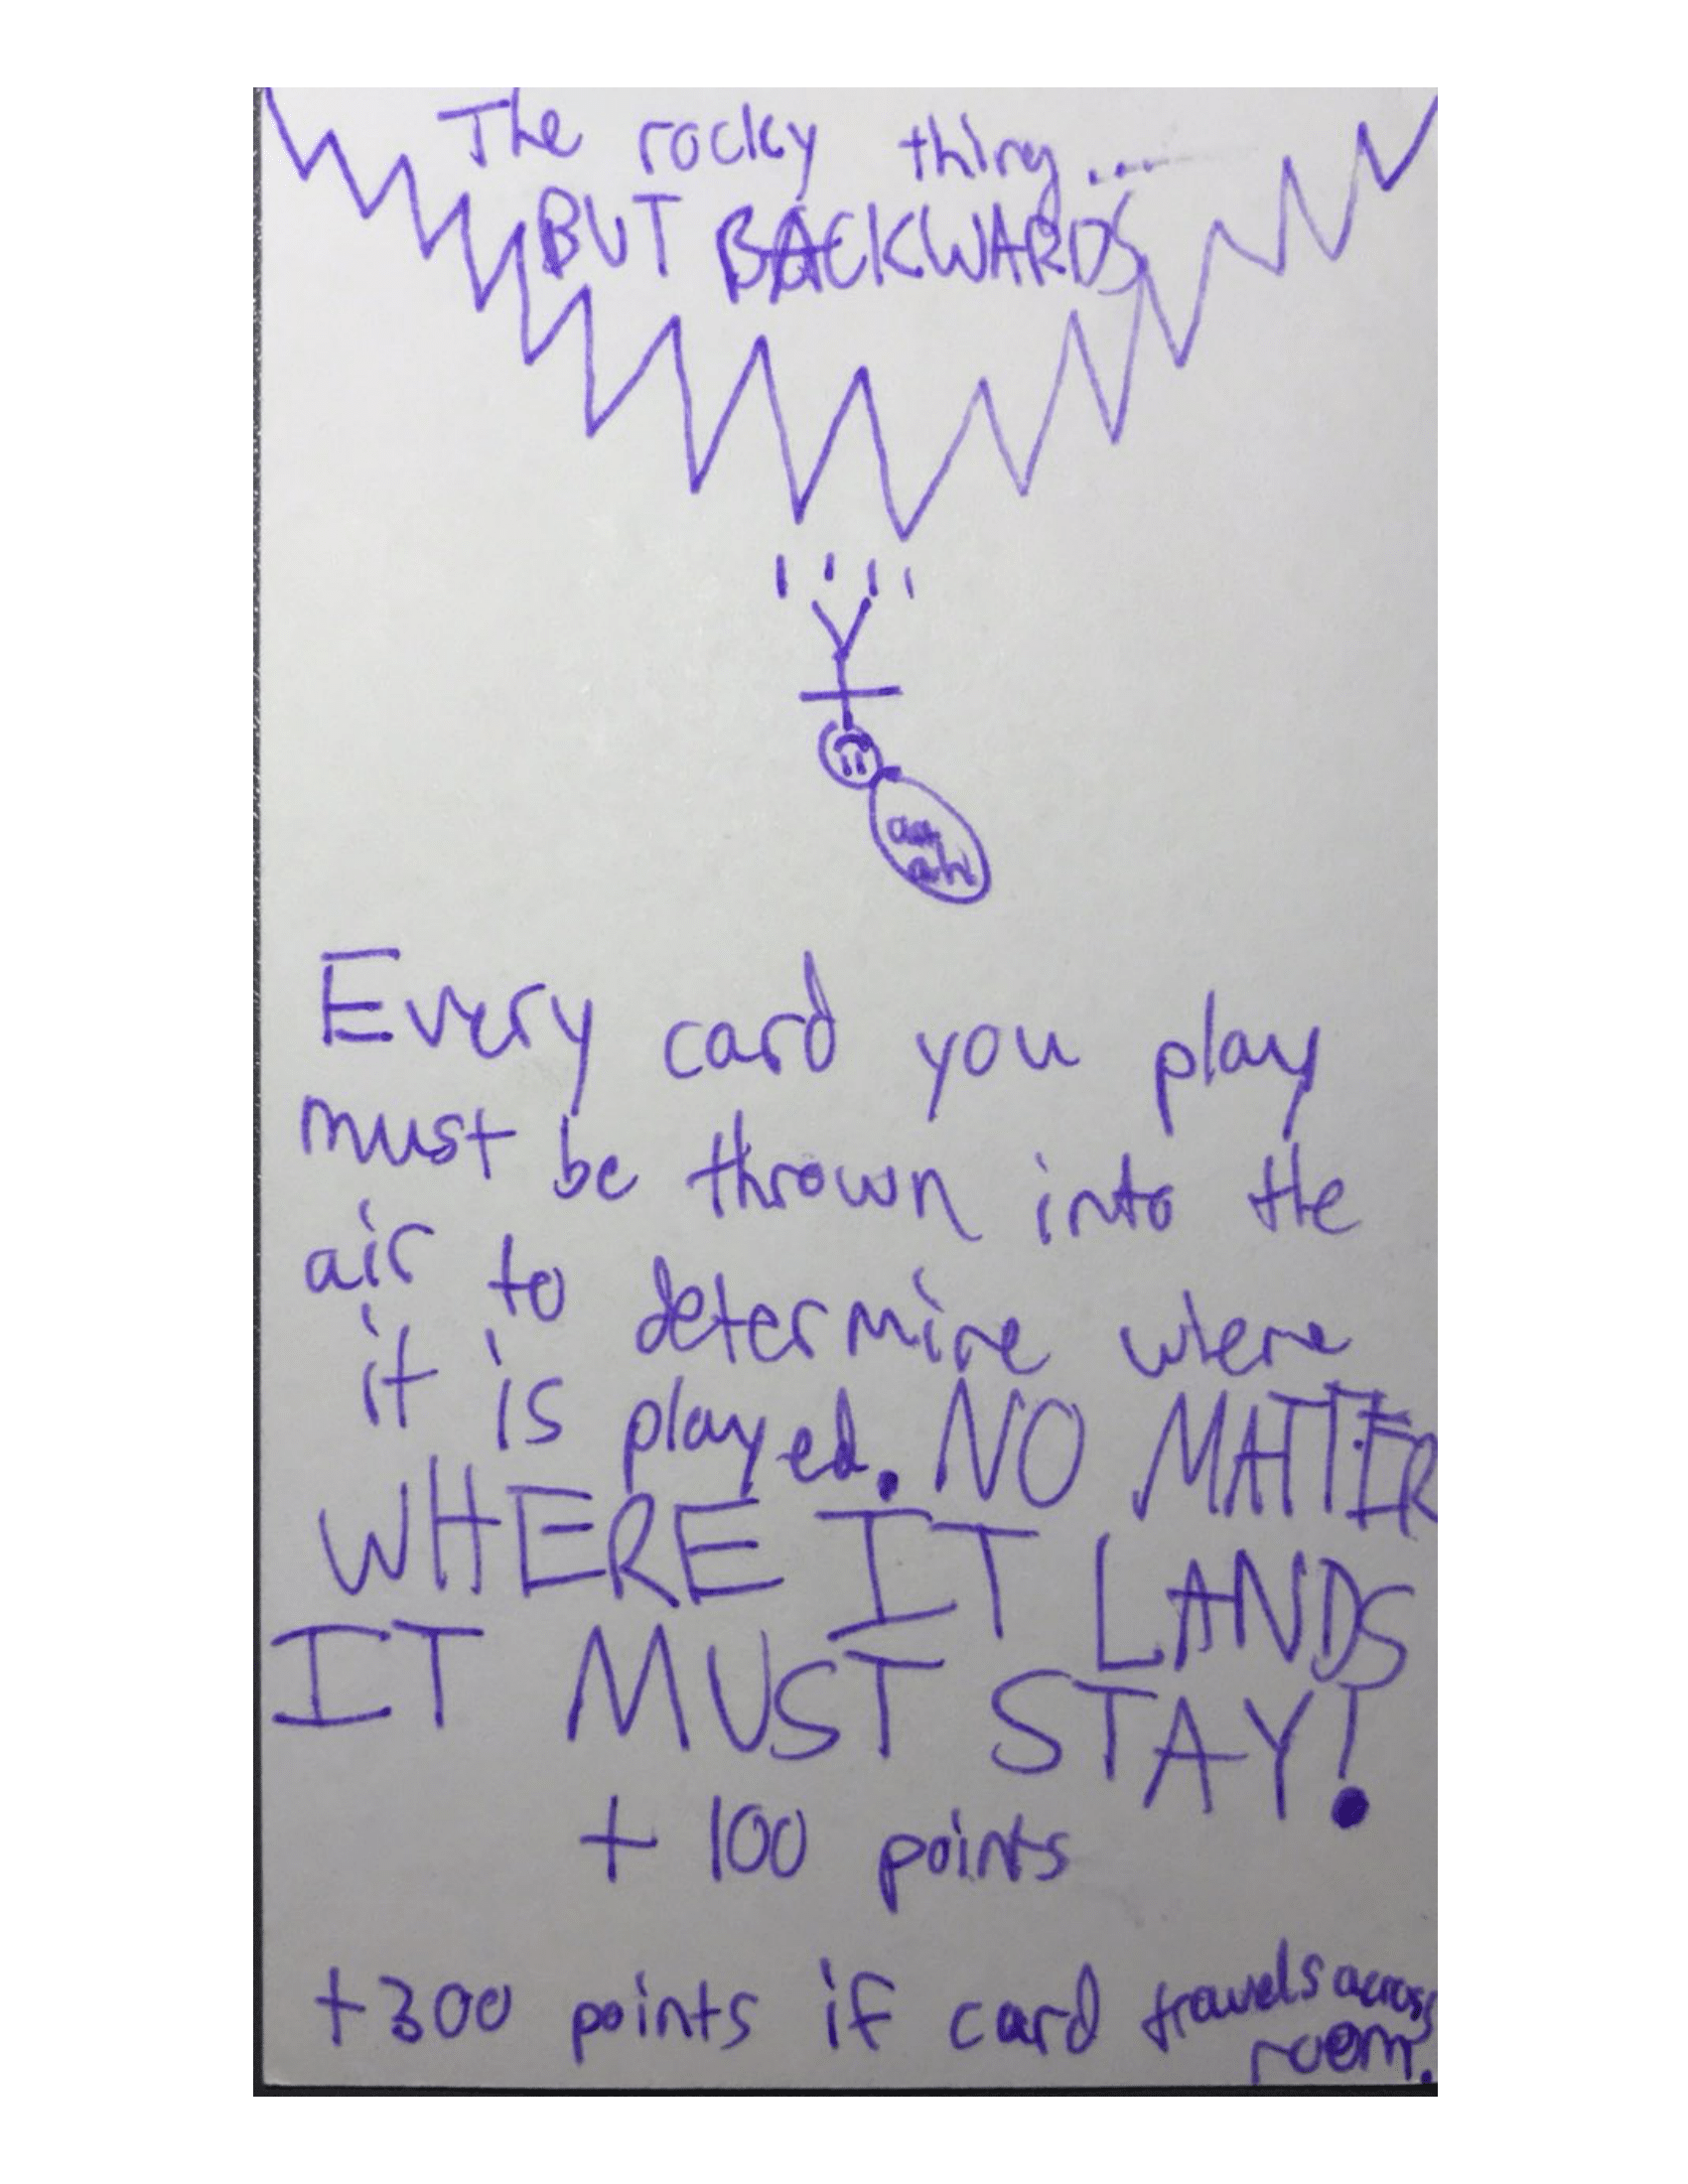 The rocky thing...
BUT BACKWARDS
aa
ah
Every card you play
must be thrown into the
air to determine where
it is played. NO MATTER
WHERE IT LANDS
IT MUST STAY!
+ 100 points
+300 points if card travels across
room.